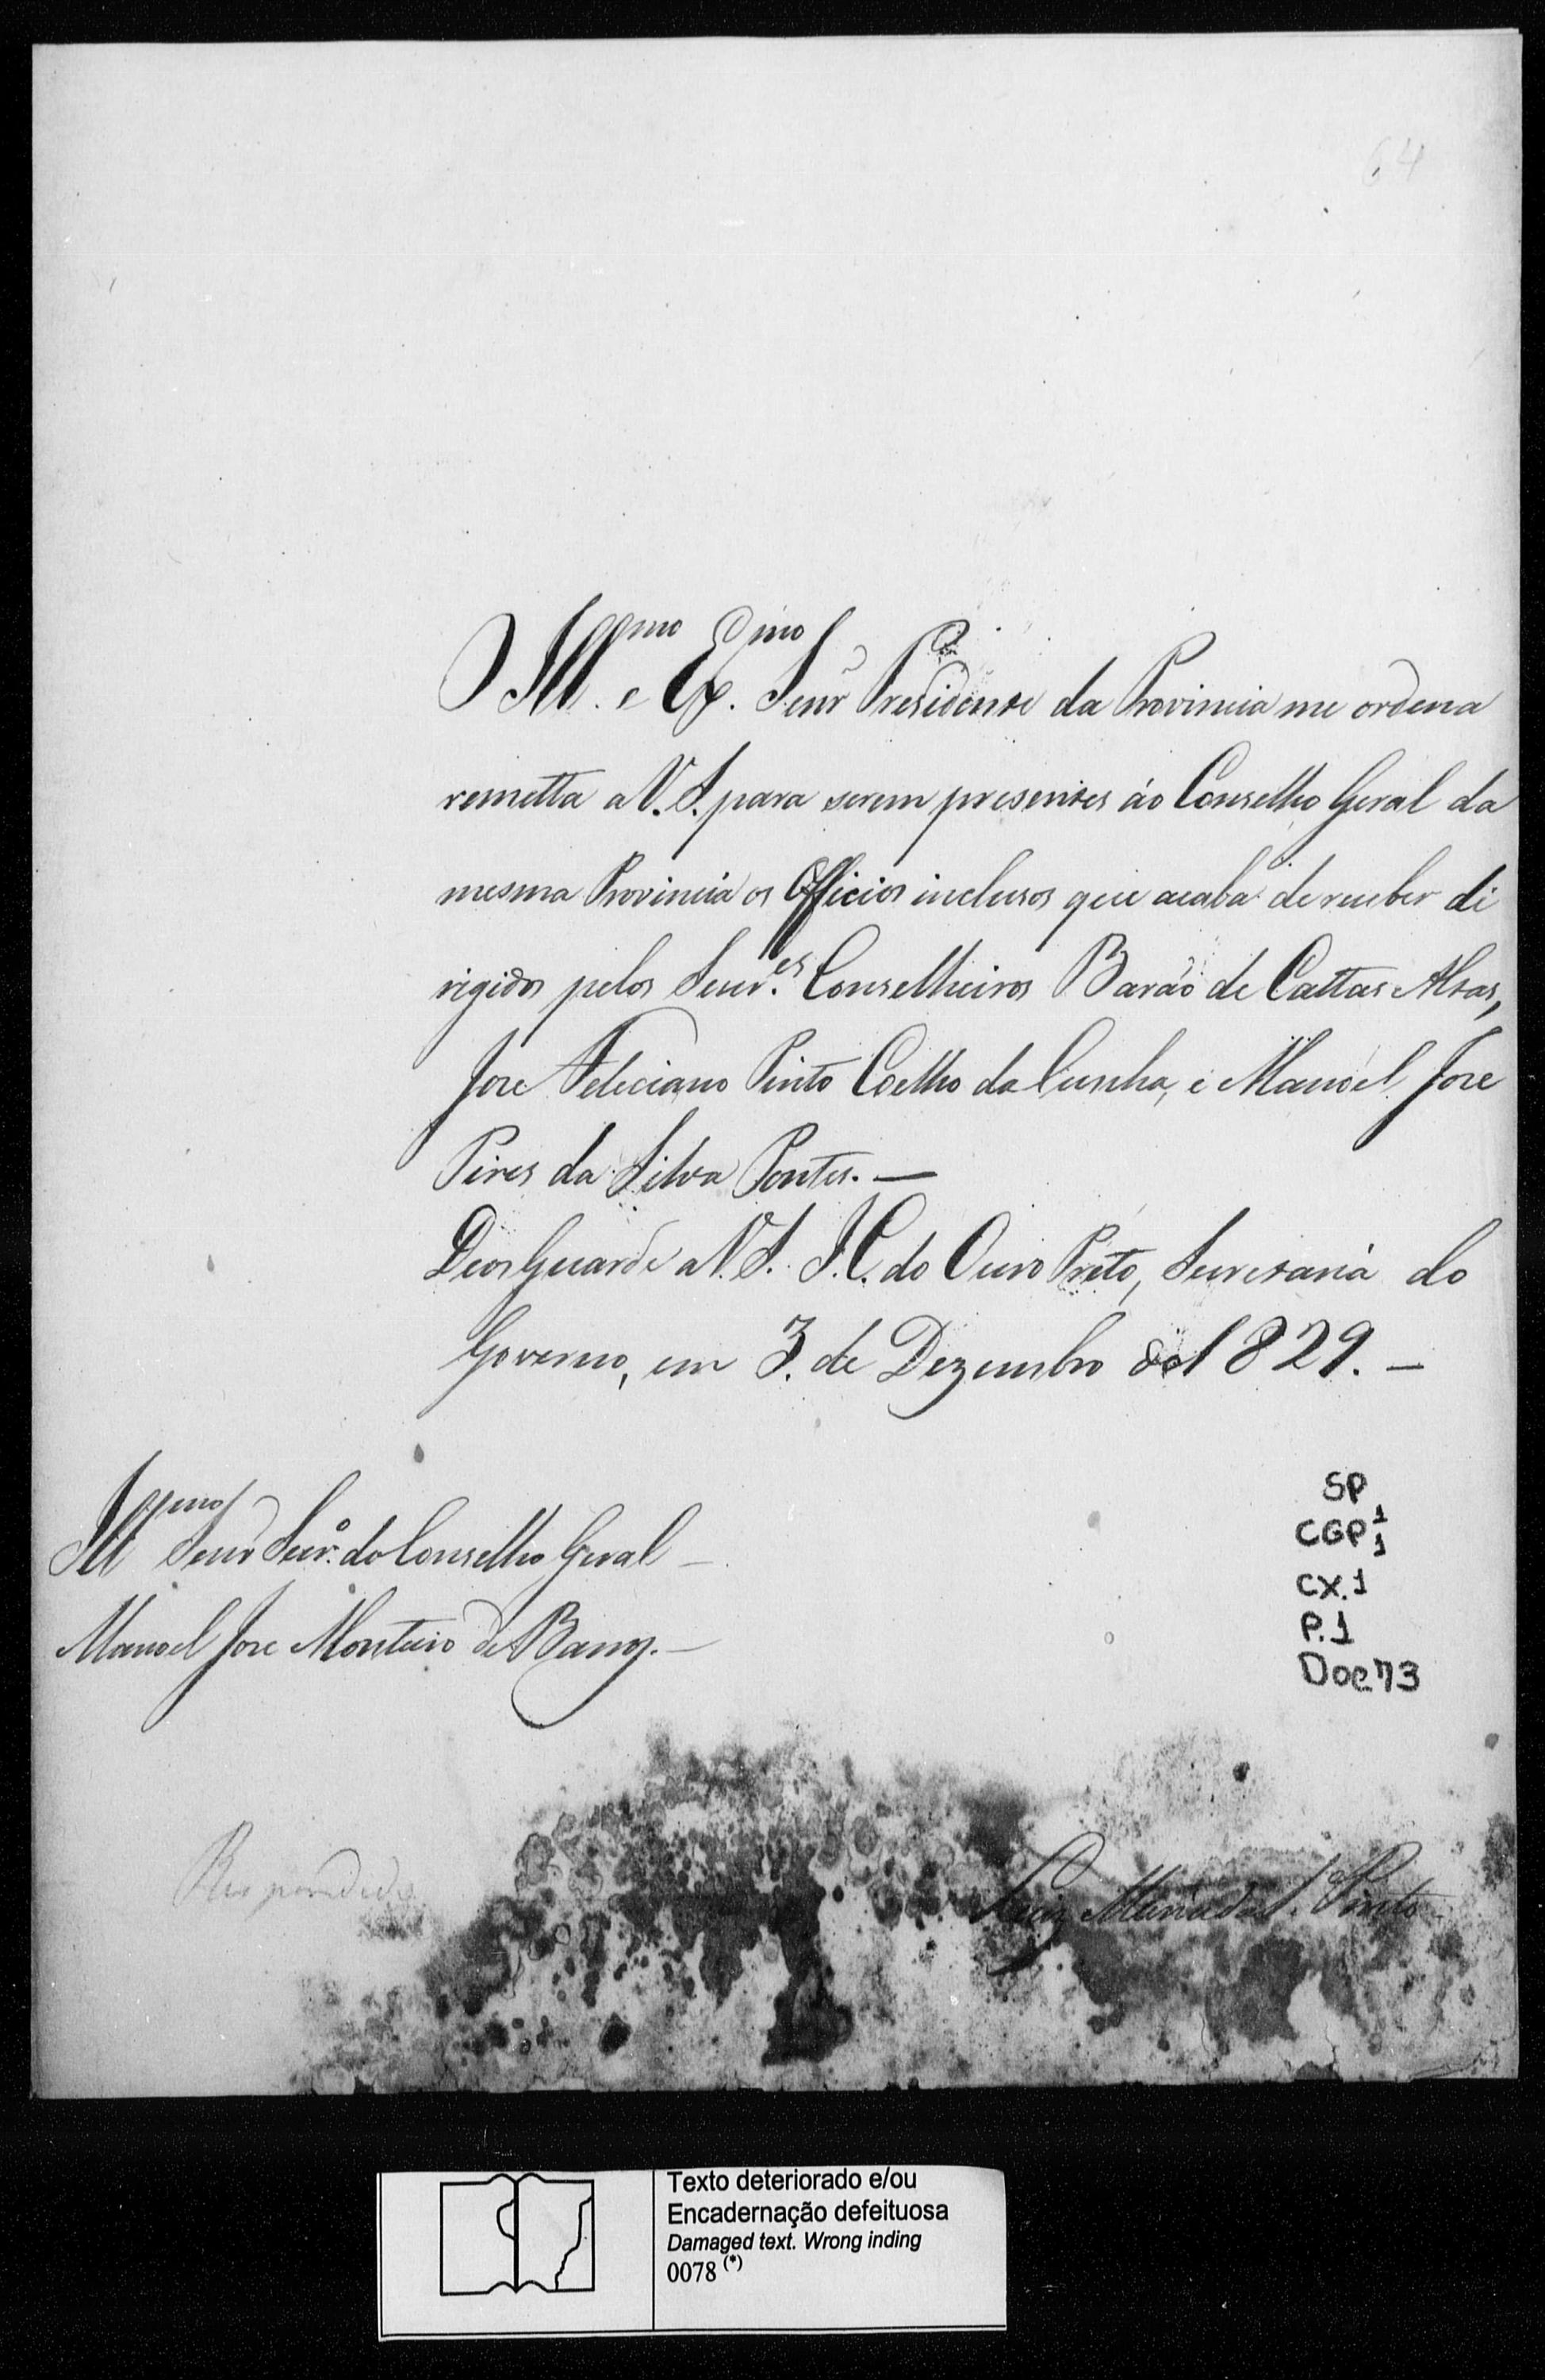 64
O Ill.mo e Ex.mo Senr̃ Presidente da Provincia me ordena
remetta a V. S. para serem presentes áo Conselho Geral da
mesma Provincia os Officios inclusos que acaba de receber di
rigidos pelos Senr.es Conselheiros Barão de Cattas Altas,
Jose Feliciano Pinto Coelho da Cunha, e Manoel Jose
Pires da Silva Pontes. —
Deos Guarde a V. S. I. C. do Ouro Preto, Secretaria do
Governo, em 3. de Dezembro de 1829. —
Ill.mo Senr Secr.o do Conselho Geral —
Manoel Jose Monteiro de Barros. —
SP
CGP 1 1
CX.1
P.1
Doc 73
Respondido
Luiz Maria da S.a Pinto
Texto deteriorado e/ou
Encadernação defeituosa
Damaged text. Wrong inding
0078 (*)